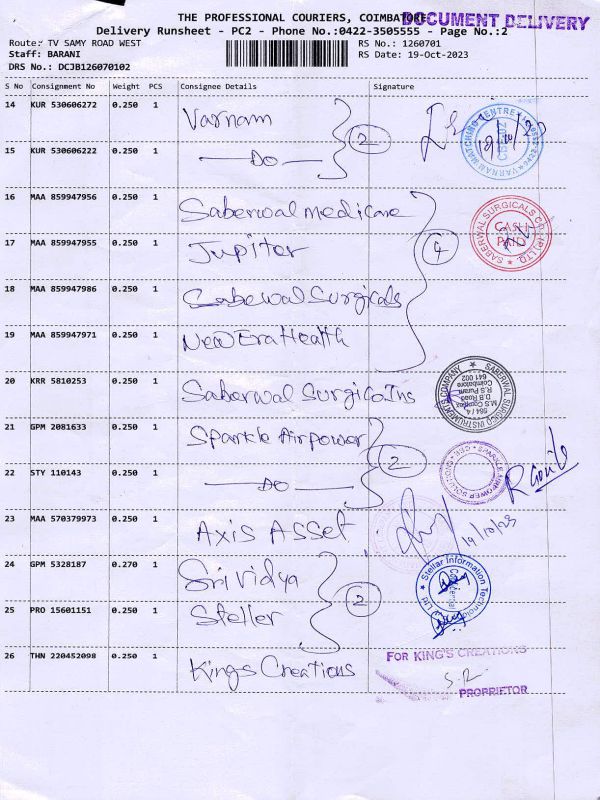 THE PROFESSIONAL COURIERS, COIMBATORE
DOCUMENT DELIVERY
Delivery Runsheet - PC2 - Phone No.:0422-3505555 - Page No.:2
Route: TV SAMY ROAD WEST
RS No.: 1260701
Staff: BARANI
RS Date: 19-Oct-2023
DRS No.: DCJB126070102
S No Consignment No Weight PCS Consignee Details Signature
14 KUR 530606272 0.250 1 Varnam
2
15 KUR 530606222 0.250 1 — DO —
VARNAM MATCHING CENTRE
16 MAA 859947956 0.250 1 Saberwal medicare
17 MAA 859947955 0.250 1 Jupiter
4
SABERWAL SURGICALS CO. (P) LTD.
CASH PAID
18 MAA 859947986 0.250 1 Saberwal Surgicals
19 MAA 859947971 0.250 1 New Era Health
20 KRR 5810253 0.250 1 Saberwal Surgico Ins
SABERWAL SURGICO INSTRUMENTS COMPANY
584 / 4
M.S Complex
D.B Road
R.S Puram
Coimbatore
641 002
21 GPM 2081633 0.250 1 Sparkle Airpower
2
22 STY 110143 0.250 1 — DO —
SPARKLE AIRPOWER SOLUTIONS
CBE
23 MAA 570379973 0.250 1 Axis Asset
19/10/23
24 GPM 5328187 0.270 1 Sri Vidya
2
25 PRO 15601151 0.250 1 Steller
Stellar Information Technology
Ltd
26 THN 220452098 0.250 1 Kings Creations
FOR KING'S CREATIONS
S.R
PROPRIETOR